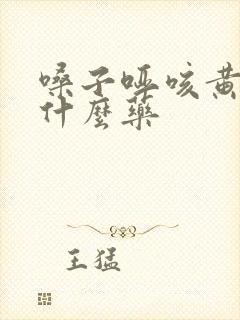 嗓子哑咳黄
什麼藥
王猛